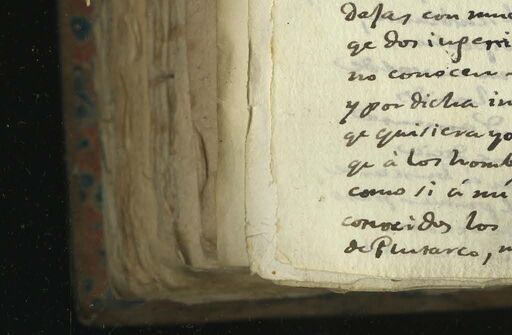 dalas con mu
qe dos ingeni
no conocen
y por dicha in
qe quisiera yo
qe à los homb
como si à mi
conocidos los
de Plutarco,